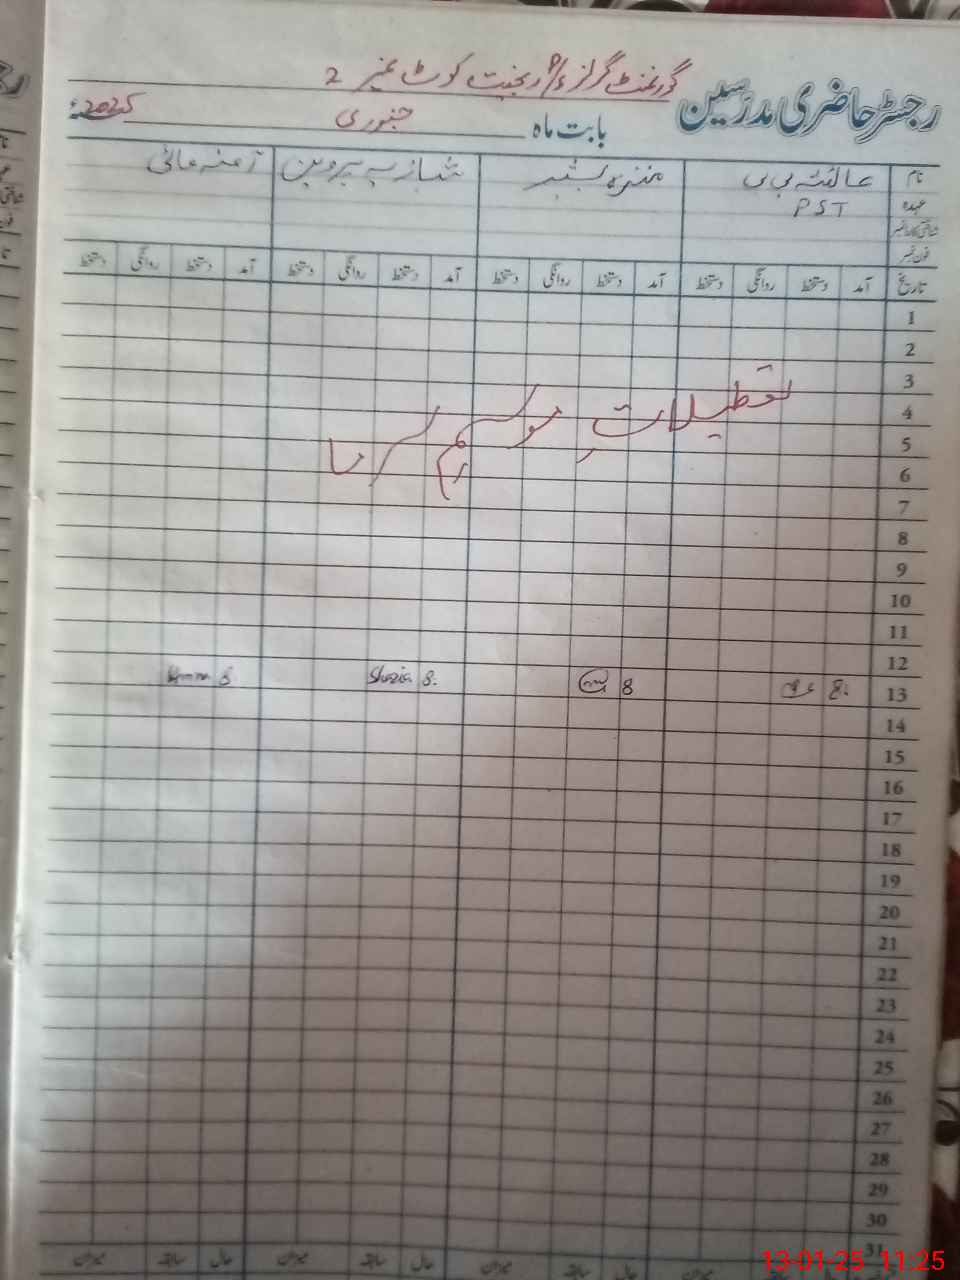 گورنمنٹ گرلز ء/P رنجیت کوٹ نمبر 2
رجسٹر حاضری مدرسین
بابت ماہ جنوری 2025ء
نام عائشہ بی بی منزہ بشیر شازیہ پروین آمنہ مائی
عہدہ PST
شناختی کارڈ نمبر
فون نمبر
تاریخ آمد دستخط روانگی دستخط آمد دستخط روانگی دستخط آمد دستخط روانگی دستخط آمد دستخط روانگی دستخط
1
2
3
تعطیلات موسم سرما
4
5
6
7
8
9
10
11
12
13 8. 8 8. Shazia 8 Amna
14
15
16
17
18
19
20
21
22
23
24
25
26
27
28
29
30
31
حال سابقہ میزان حال سابقہ میزان
13-01-25 11:25